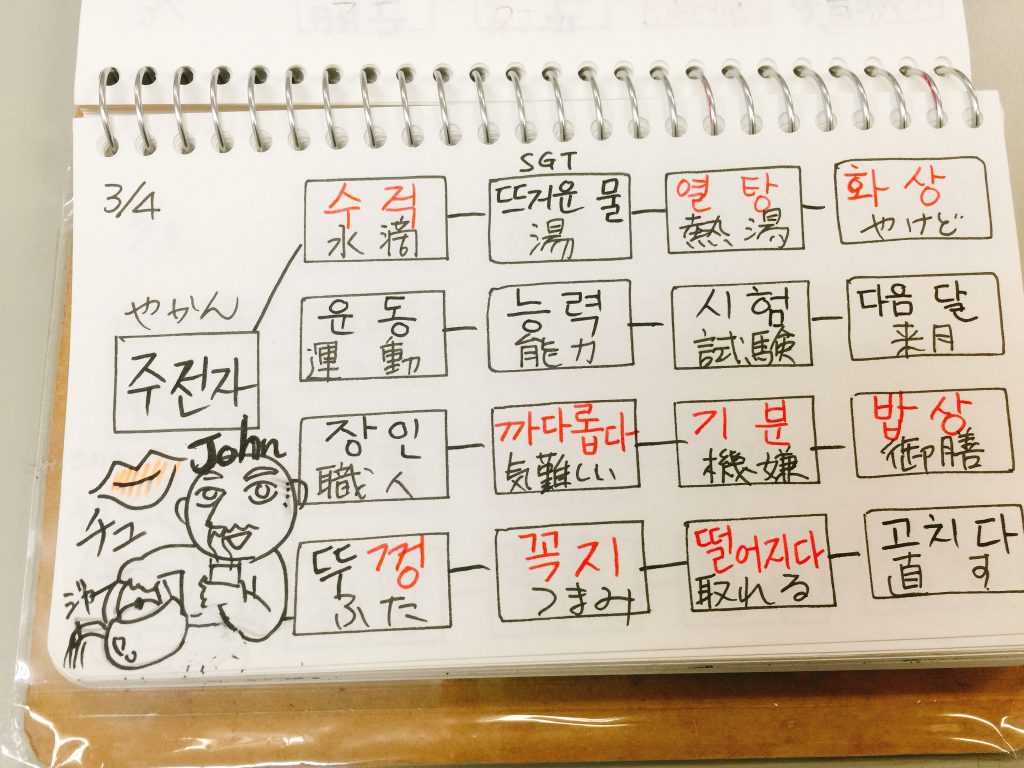 3/4
SGT
수 적
水 滴
뜨거운 물
湯
열 탕
熱 湯
화 상
やけど
운 동
運 動
능 력
能 力
시 험
試 験
다음 달
来月
やかん
주전자
장 인
職 人
까다롭다
気難しい
기 분
機 嫌
밥 상
御膳
John
チュ
ジャー
뚜 껑
ふた
꼭 지
つまみ
떨어지다
取れる
고치다
直 す